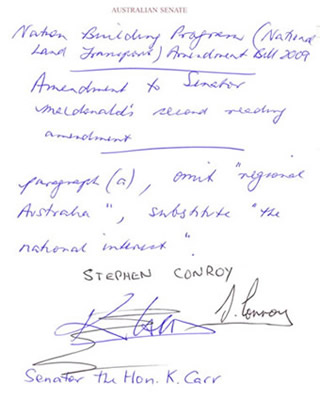 AUSTRALIAN SENATE
Nation Building Program (National
Land Transport) Amendment Bill 2009
Amendment to Senator
Macdonald's second reading
amendment
paragraph (a), omit "regional
Australia", substitute "the
national interest".
STEPHEN CONROY
K Carr S. Conroy
Senator the Hon. K. Carr